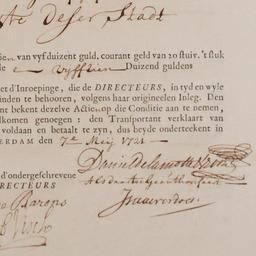 ste deser Stadt
van vyf duizent guld. courant geld van 20 stuiv. 't stuk
de Vyfftien Duizend guldens
et d'Inroepinge, die de DIRECTEURS, in tyd en wyle
inden te behooren, volgens haar origineelen Inleg. Den
ant bekent dezelve Actie op die Conditie aan te nemen,
dkomen genoegen: den Transportant verklaart van
voldaan en betaalt te zyn, dus beyde onderteekent in
ERDAM den 7e Meij 1721
Daniel de la
d'ondergeschrevene
RECTEURS
Barons